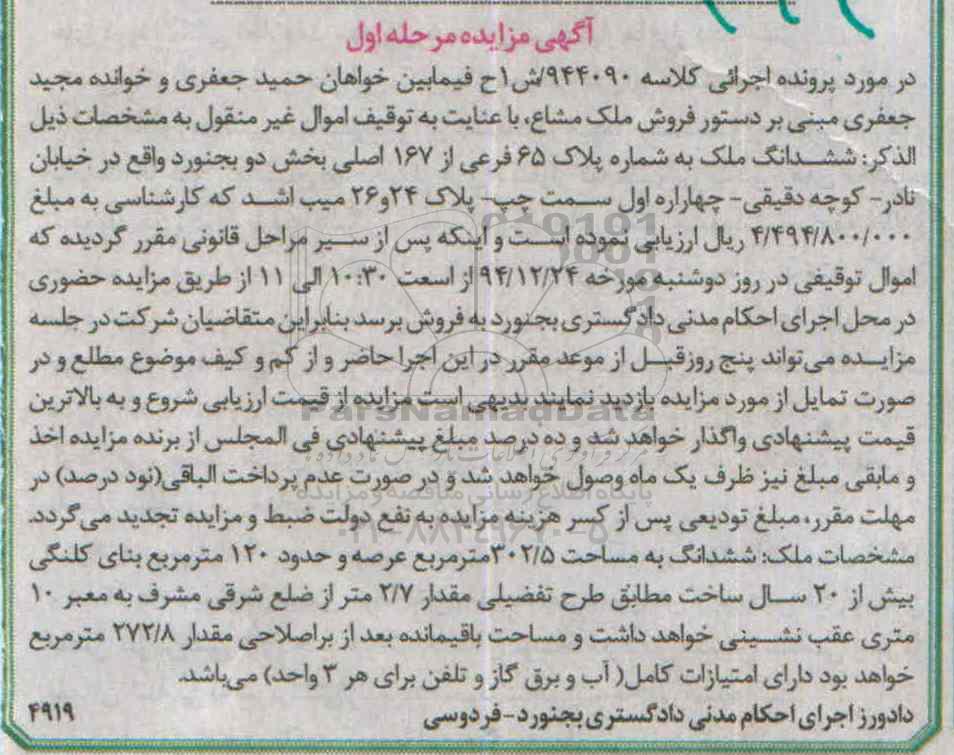 آگهی مزایده مرحله اول
در مورد پرونده اجرائی کلاسه ۹۴۴۰۹۰/ش۱ح فیمابین خواهان حمید جعفری و خوانده مجید
جعفری مبنی بر دستور فروش ملک مشاع، با عنایت به توقیف اموال غیر منقول به مشخصات ذیل
الذکر: ششدانگ ملک به شماره پلاک ۶۵ فرعی از ۱۶۷ اصلی بخش دو بجنورد واقع در خیابان
نادر- کوچه دقیقی- چهاراره اول سمت چپ- پلاک ۲۴و۲۶ میب اشد که کارشناسی به مبلغ
۴/۴۹۴/۸۰۰/۰۰۰ ریال ارزیابی نموده است و اینکه پس از سیر مراحل قانونی مقرر گردیده که
اموال توقیفی در روز دوشنبه مورخه ۹۴/۱۲/۲۴ از اسعت ۱۰:۳۰ الی ۱۱ از طریق مزایده حضوری
در محل اجرای احکام مدنی دادگستری بجنورد به فروش برسد بنابراین متقاضیان شرکت در جلسه
مزایده می‌تواند پنج روزقبل از موعد مقرر در این اجرا حاضر و از کم و کیف موضوع مطلع و در
صورت تمایل از مورد مزایده بازدید نمایند بدیهی است مزایده از قیمت ارزیابی شروع و به بالاترین
قیمت پیشنهادی واگذار خواهد شد و ده درصد مبلغ پیشنهادی فی المجلس از برنده مزایده اخذ
و مابقی مبلغ نیز ظرف یک ماه وصول خواهد شد و در صورت عدم پرداخت الباقی(نود درصد) در
مهلت مقرر، مبلغ تودیعی پس از کسر هزینه مزایده به نفع دولت ضبط و مزایده تجدید می‌گردد.
مشخصات ملک: ششدانگ به مساحت ۳۰۲/۵مترمربع عرصه و حدود ۱۲۰ مترمربع بنای کلنگی
بیش از ۲۰ سال ساخت مطابق طرح تفضیلی مقدار ۲/۷ متر از ضلع شرقی مشرف به معبر ۱۰
متری عقب نشینی خواهد داشت و مساحت باقیمانده بعد از براصلاحی مقدار ۲۷۲/۸ مترمربع
خواهد بود دارای امتیازات کامل( آب و برق گاز و تلفن برای هر ۳ واحد) می‌باشد.
دادورز اجرای احکام مدنی دادگستری بجنورد-فردوسی
۴۹۱۹
ParsNamadData
پایگاه اطلاع رسانی مناقصه و مزایده
۰۲۱-۸۸۳۴۹۶۷۰-۵